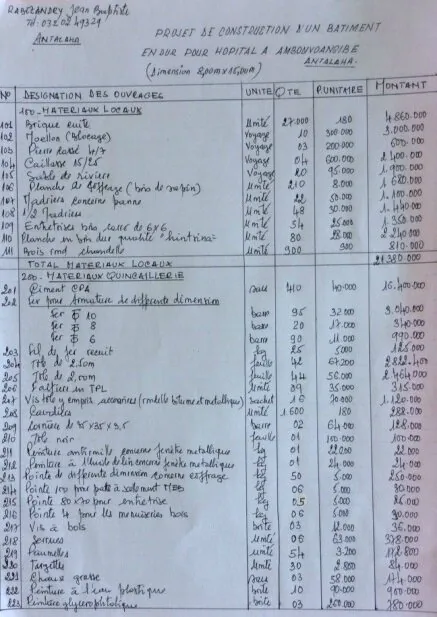 RABOZANDRY Jean Baptiste
Tél: 032 02 493 29
ANTALAHA
PROJET DE CONSTRUCTION D'UN BATIMENT
EN DUR POUR HOPITAL A AMBOVOANGIBE
ANTALAHA.
(Dimension 8,00m x 15,00m)
N° DESIGNATION DES OUVRAGES UNITE QTE P.UNITAIRE MONTANT
100-MATERIAUX LOCAUX
101 Brique cuite Unité 27.000 180 4.860.000
102 Moellon (Blocage) Voyage 10 300 000 3.000.000
103 Pierre cassé 4/7 Voyage 03 200.000 600.000
104 Caillasse 15/25 Voyage 04 600.000 2.400.000
105 Sable de rivière Voyage 20 95.000 1.900.000
106 Planche de coffrage (bois de sapin) Unité 210 8.000 1 680.000
107 Madriers concerne panne Unité 22 50.000 1.100.000
108 1/2 Madriers Unité 48 30.000 1.440.000
109 Entretoises bois carré de 6x6 Unité 54 25.000 1.350.000
110 Planche en bois dur qualité "hintsina" Unité 80 28.000 2.240.000
111 Bois rond chandelle Unité 900 900 810.000
TOTAL MATERIAUX LOCAUX 21 380 000
200-MATERIAUX QUINCAILLERIE
201 Ciment CPA sac 410 40.000 16.400.000
202 Fer pour armature de différente dimension
Fer 10 barre 95 32 000 3.040.000
Fer 8 barre 20 17.000 340.000
Fer 6 barre 90 11 000 990.000
203 Fil de fer recuit kg 25 5000 125.000
204 Tôle de 2,50m feuille 42 67.200 2.822.400
205 Tôle de 2,00m feuille 44 56.000 2.464.000
206 Faîtière en TPL Unité 09 35 000 315.000
207 Vis tôle y compris accessoires (rondelle bitume et métallique) sachet 16 70.000 1.120.000
208 Unité 1600 180 288.000
209 Cornière de 35x35x3,5 barre 02 64.000 128.000
210 Tôle noir feuille 01 100.000 100.000
211 Peinture antirouille concerne fenêtre métallique kg 01 22.000 22.000
212 Peinture à l'huile de lin concerne fenêtre métallique kg 01 24.000 24.000
213 Pointe de différente dimension concerne coffrage kg 50 5.000 250.000
214 Pointe 100 pour kg 06 5000 30.000
215 Pointe 80 x 70 pour entretoise kg 05 5.000 25.000
216 Pointe 4 pour les menuiseries bois kg 06 5000 30.000
217 Vis à bois boîte 03 12.000 36.000
218 Serrures Unité 06 63.000 378.000
219 Paumelles Unité 54 3.200 172.800
220 Targettes Unité 30 2 800 84.000
221 Chaux grasse sac 03 58.000 174.000
222 Peinture à l'eau plastique boîte 10 90.000 900.000
223 Peinture glycérophtalique boîte 03 260.000 780.000